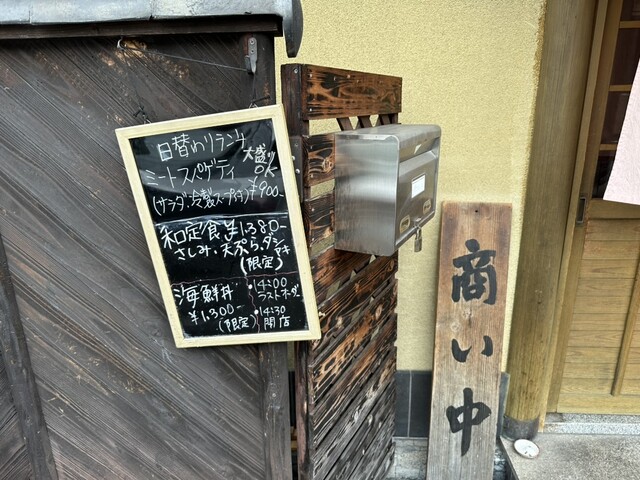 日替わりランチ
大盛り
OK
ミートスパゲティ
(サラダ・冷製スープ付き) ¥900-
和定食 ¥1,380-
さしみ・天ぷら・ダシ巻
(限定)
海鮮丼
¥1,300-
(限定)
・14:00
ラストオーダー
・14:30
閉店
商い中